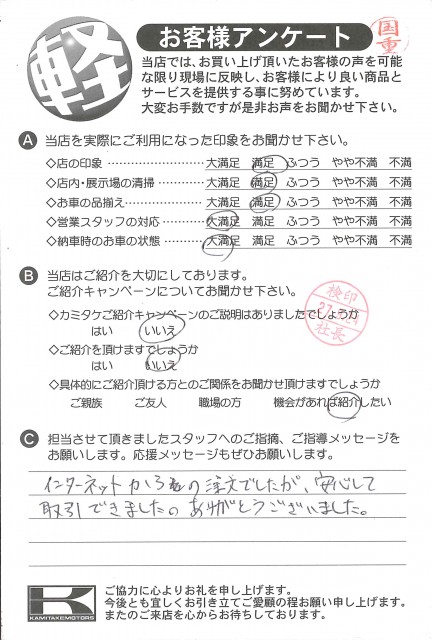 軽
お客様アンケート
国重
当店では、お買い上げ頂いたお客様の声を可能
な限り現場に反映し、お客様により良い商品と
サービスを提供する事に努めています。
大変お手数ですが是非お声をお聞かせ下さい。
A 当店を実際にご利用になった印象をお聞かせ下さい。
◇店の印象 ………………… 大満足 満足 ふつう やや不満 不満
◇店内・展示場の清掃 ………… 大満足 満足 ふつう やや不満 不満
◇お車の品揃え ……………… 大満足 満足 ふつう やや不満 不満
◇営業スタッフの対応 ………… 大満足 満足 ふつう やや不満 不満
◇納車時のお車の状態 ………… 大満足 満足 ふつう やや不満 不満
B 当店はご紹介を大切にしてあります。
ご紹介キャンペーンについてお聞かせ下さい。
検印
社長
◇カミタケご紹介キャンペーンのご説明はありましたでしょうか
はい いいえ
◇ご紹介を頂けますでしょうか
はい いいえ
◇具体的にご紹介頂ける方とのご関係をお聞かせ頂けますでしょうか
ご親族 ご友人 職場の方 機会があれば紹介したい
C 担当させて頂きましたスタッフへのご指摘、ご指導メッセージを
お願いします。応援メッセージもぜひお願いします。
インターネットからの注文でしたが、安心して
取引できました。ありがとうございました。
K
KAMITAKEMOTORS
ご協力に心よりお礼を申し上げます。
今後とも宜しくお引き立てご愛顧の程お願い申し上げます。
またのご来店を心からお待ちしております。